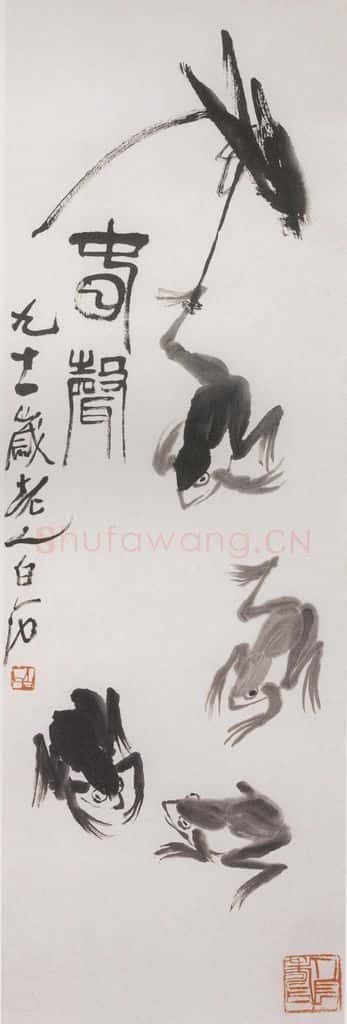 春聲
九十一歲老人白石
Shufawang.CN